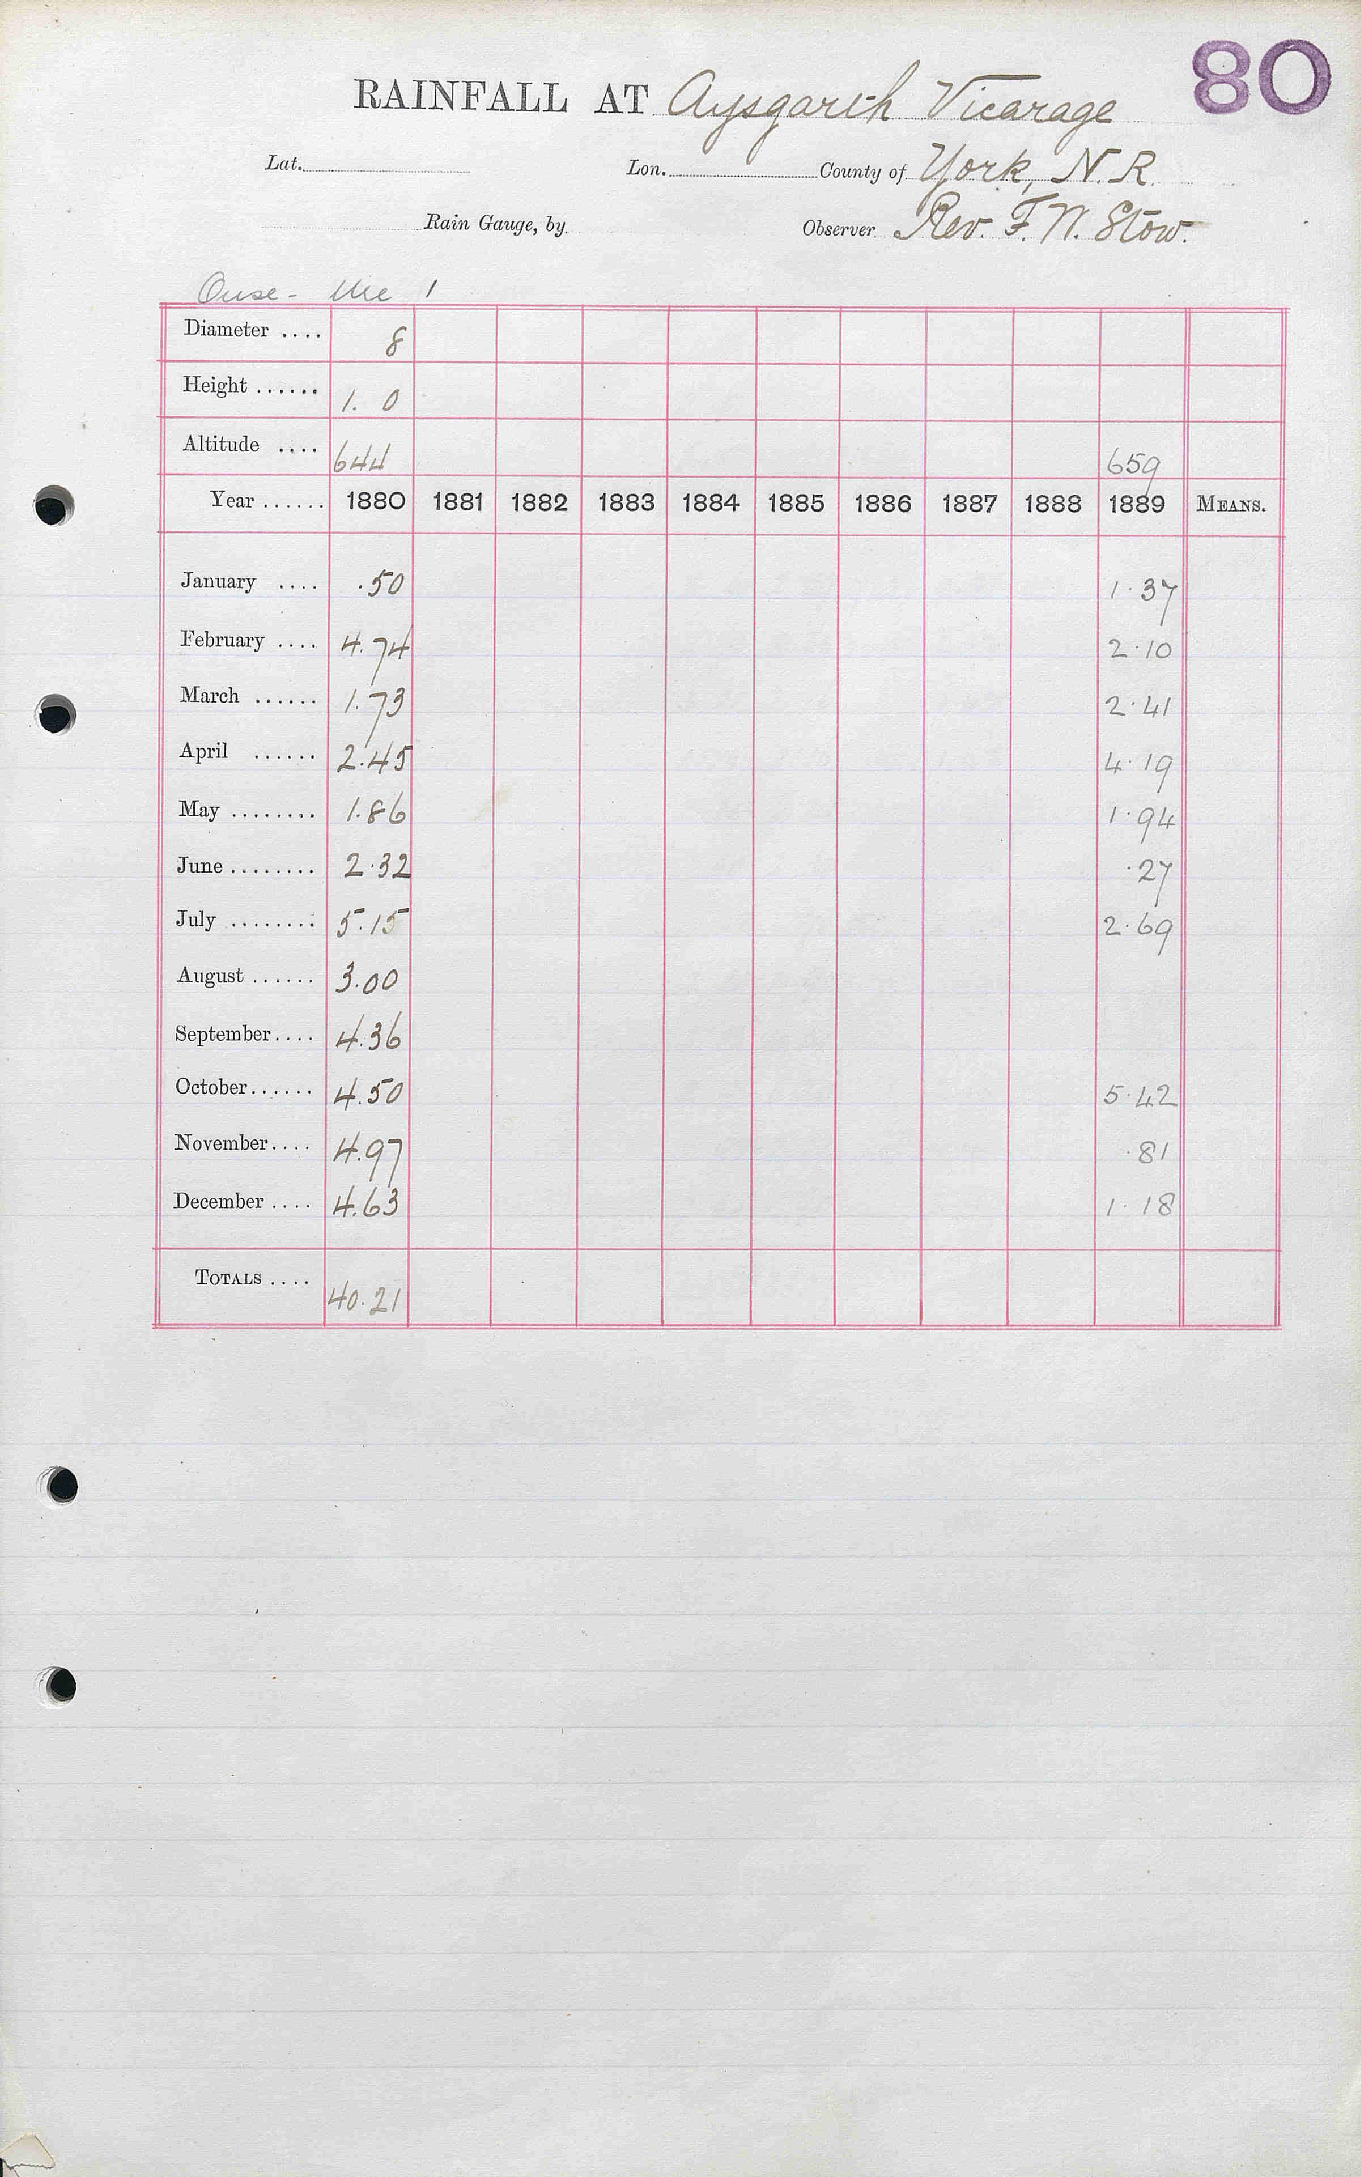 80
RAINFALL AT Aysgarth Vicarage
Lat. Lon. County of York, N.R.
Rain Gauge, by Observer Rev. F. W. Stow.
Ouse - Ure 1
Diameter .... 8
Height ...... 1. 0
Altitude .... 644 659
Year ...... 1880 1881 1882 1883 1884 1885 1886 1887 1888 1889 MEANS.
January .... .50 1.37
February .... 4.74 2.10
March ...... 1.73 2.41
April ...... 2.45 4.19
May ........ 1.86 1.94
June ........ 2.32 .27
July ........ 5.15 2.69
August ...... 3.00
September .... 4.36
October ...... 4.50 5.42
November .... 4.97 .81
December .... 4.63 1.18
TOTALS .... 40.21